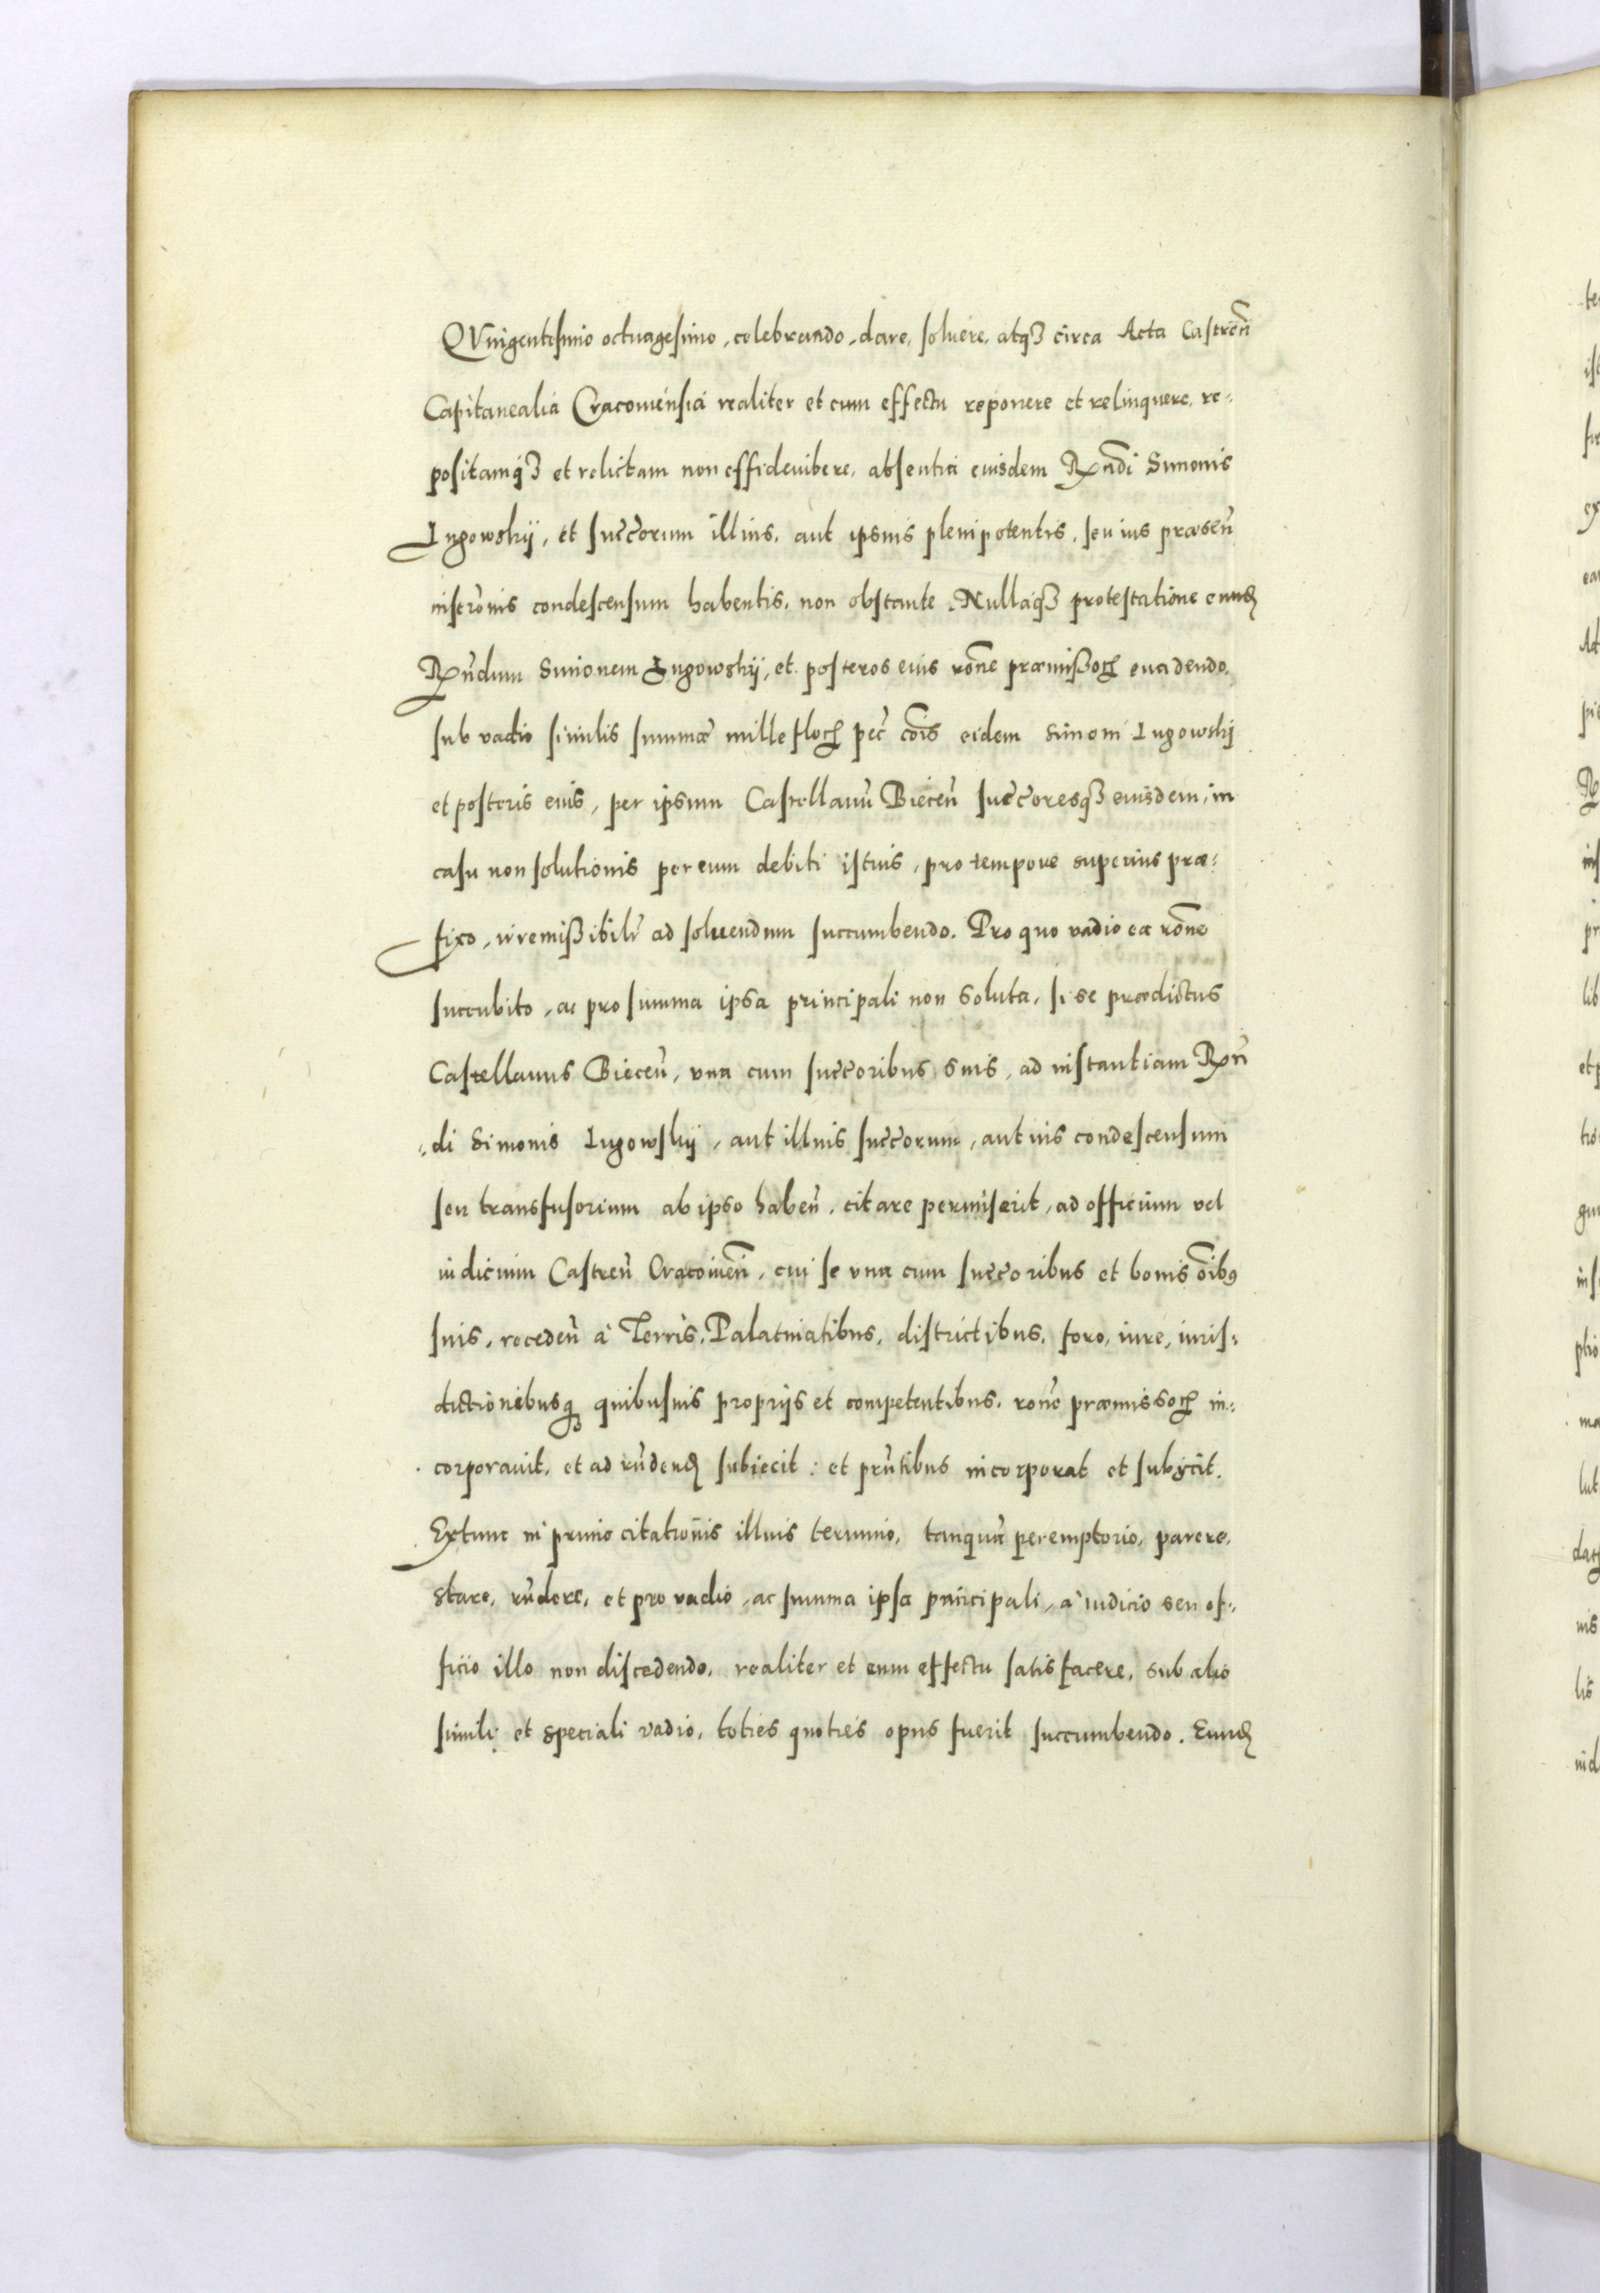 QVingentesimo octuagesimo, celebrando, dare, soluere, atqȝ circa Acta Castren̄
Capitanealia Cracouiensia realiter et cum effectu reponere et relinquere, re-
positamqȝ et relictam non effideiubere, absentia eiusdem Rn̄di Simonis
Iugowskij, et succorum illius, aut ipsius plenipotentis, seu ius praesen̄
inscrōnis condescensum habentis, non obstante. Nullaqȝ protestatione eundꝫ
Rn̄dum Simonem Iugowskij, et posteros eius rōne praemißoꝝ euadendo,
sub vadio similis summae mille floꝝ pec̄ cōis eidem Simoni Iugowskj
et posteris eius, per ipsum Castellanū Biecen̄ succoresqȝ eiusdem, in
casu non solutionis per eum debiti istius, pro tempore superius prae-
fixo, irremißibilr̄ ad soluendum succumbendo. Pro quo vadio ea rōne
succubito, ac pro summa ipsa principali non soluta, si se praedictus
Castellanus Biecen̄, vna cum succoribus suis, ad instantiam Rn̄
-di Simonis Iugowskij, aut illius succorum, aut ius condescensum
seu transfusorium ab ipso haben̄, citare permiserit, ad officium vel
iudicium Castren̄ Cracouien̄, cui se vna cum succoribus et bonis oībꝫ
suis, receden̄ à Terris, Palatinatibus, districtibus, foro, iure, iuris-
dictionibusqȝ quibusuis proprijs et competentibus, rōne praemissoꝝ in-
corporauit, et ad rn̄dendꝫ subiecit: et prn̄tibus incorporat et subijcit.
Extunc in primo citationis illius termino, tanquā peremptorio, parere,
stare, rn̄dere, et pro vadio, ac summa ipsa principali, a iudicio seu of-
ficio illo non discedendo, realiter et cum effectu satisfacere, sub alio
simili et speciali vadio, toties quoties opus fuerit succumbendo. Eundꝫ